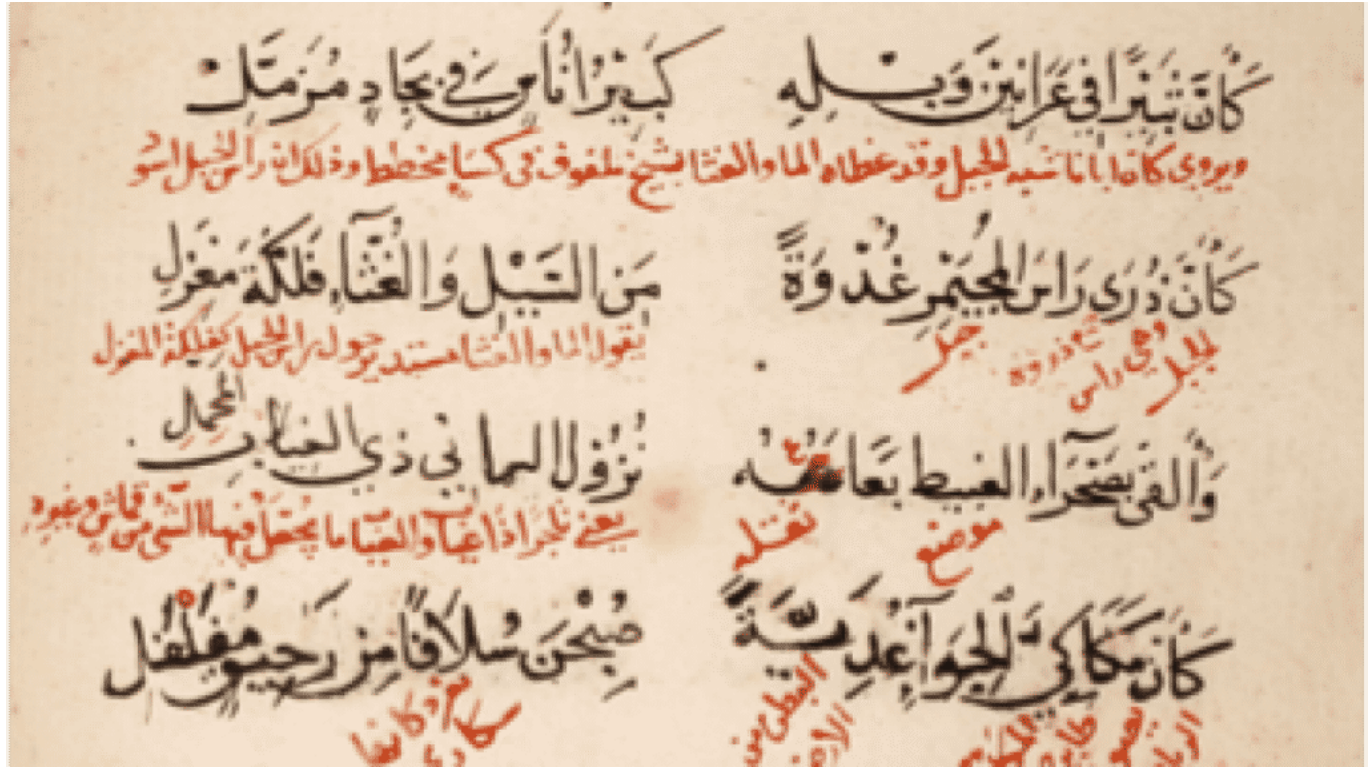 كَأَنَّ ثَبِيْرًا فِي عَرَانِيْنِ وَبْلِهِ كَبِيْرُ أُنَاسٍ فِي بِجَادٍ مُزَمَّلِ
ويروى كان ابانا شبه الجبل وقد غطاه الما والغثا بشيخ ملفوف في كسا مخطط وذلك ان راس الجبل اسود
كَأَنَّ ذُرَى رَاسِ المُجَيْمِرِ غُدْوَةً مِنَ السَّيْلِ وَالغُثَّآءِ فَلْكَةُ مِغْزَلِ
الجبل وهي راس جمع ذروة جبل يقول الما والغثا مستدير حول راس الجبل كفلكة المغزل
وَأَلقَى بِصَحْرَآءِ الغَبِيطِ بَعَاعَهُ نُزُوْلَ اليماني ذي العياب المحمل
موضع ثقله يعني تاجرا ذا عياب والعياب ما يجعل فيها الشي من قماش وغيره
كَأَنَّ مَكَاكِيَّ الجِوَآءِ غُدَيَّةً صُبِحْنَ سُلَافًا مِنْ رَحِيقٍ مُفَلْفَلِ